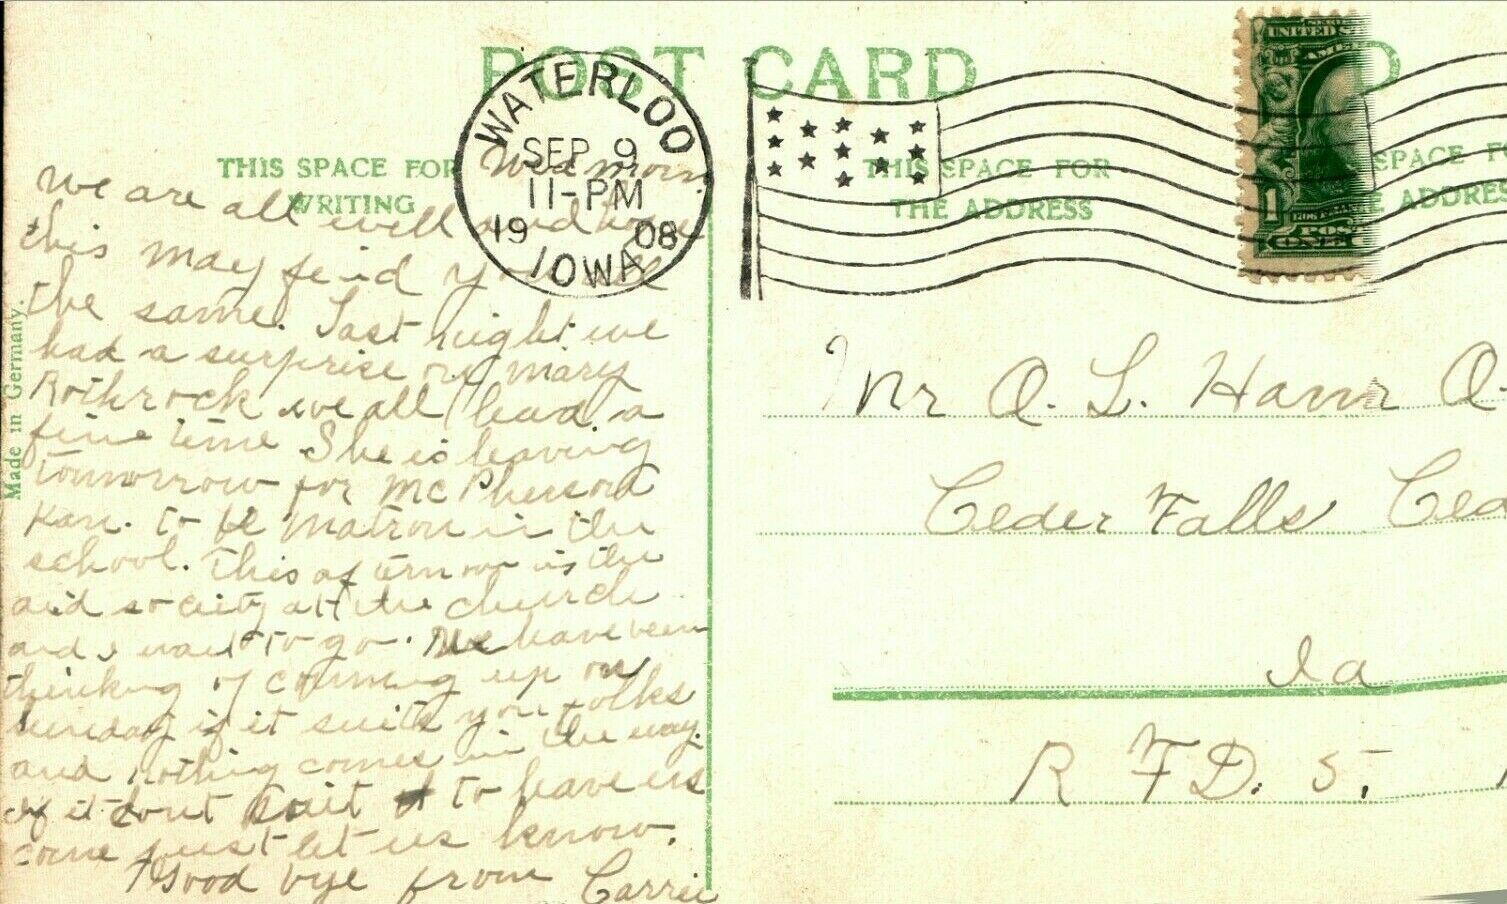 POST CARD
THIS SPACE FOR
WRITING
THIS SPACE FOR
THE ADDRESS
SPACE
ADDRESS
WATERLOO
SEP 9
11-PM
1908
IOWA
UNITED
1
POS
ONE
Made in Germany.
Wed morn.
We are all well and hope
this may find you all
the same. Last night we
had a surprise on Mary
Rothrock we all had a
fine time She is leaving
tomorrow for McPherson
Kan. to be Matron in the
school. This afternoon is the
aid society at the church
and I want to go. We have been
thinking of coming up on
Sunday if it suits you folks
and nothing comes in the way.
If it dont suit to have us
come just let us know.
Good bye from Carrie
Mr O. L. Hamr
Ceder Falls
Ia
R F D. 5.